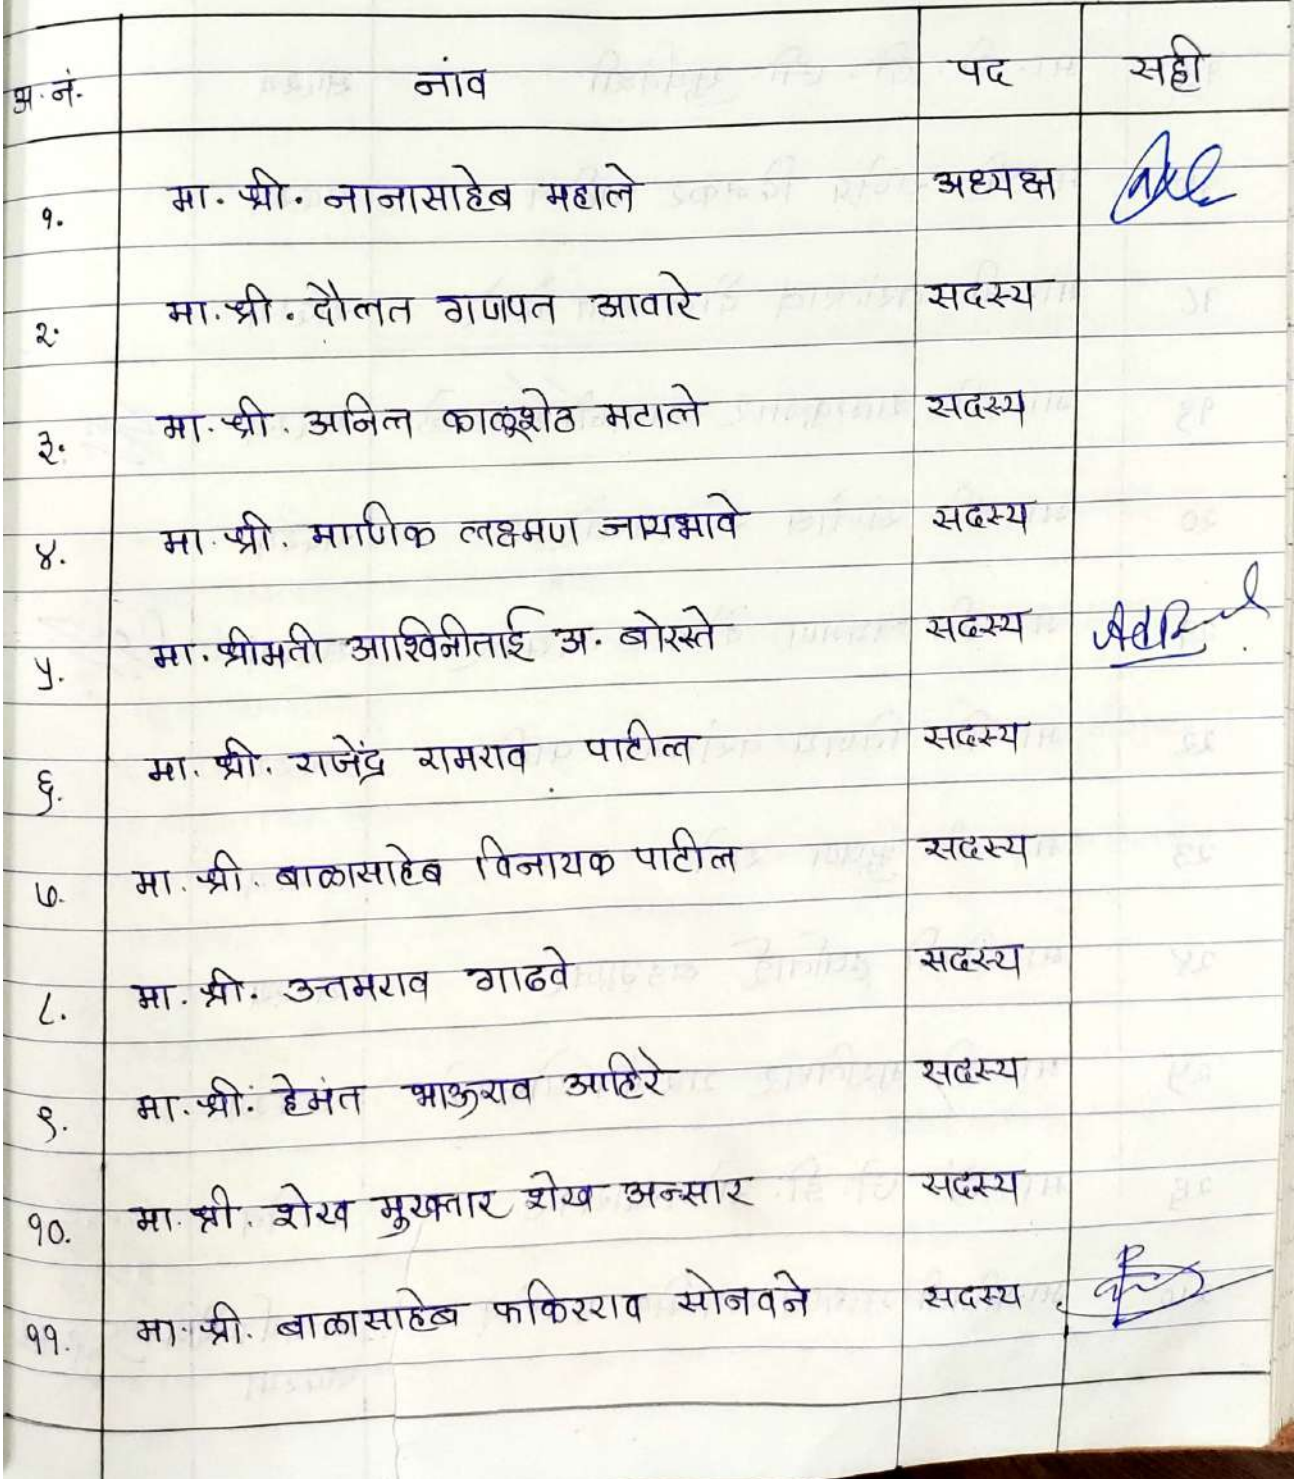 अ.नं. नांव पद सही
१. मा. श्री. नानासाहेब महाले अध्यक्ष
२. मा. श्री. दौलत गणपत आवारे सदस्य
३. मा. श्री. अनिल काळूशेठ मटाले सदस्य
४. मा. श्री. माणिक लक्ष्मण जायभावे सदस्य
५. मा. श्रीमती आश्विनीताई अ. बोरस्ते सदस्य
६. मा. श्री. राजेंद्र रामराव पाटील सदस्य
७. मा. श्री. बाळासाहेब विनायक पाटील सदस्य
८. मा. श्री. उत्तमराव गाढवे सदस्य
९. मा. श्री. हेमंत भाऊराव आहिरे सदस्य
१०. मा. श्री. शेख मुख्तार शेख अन्सार सदस्य
११. मा. श्री. बाळासाहेब फकिरराव सोनवने सदस्य